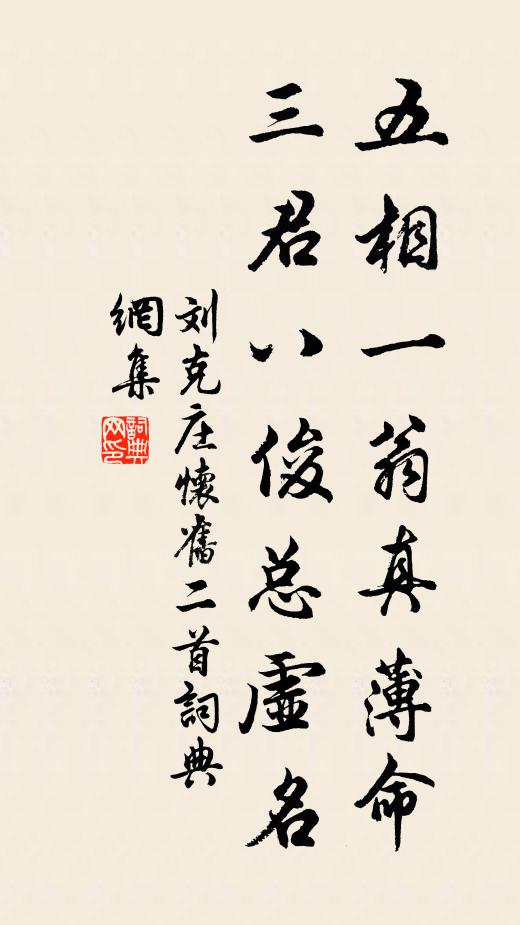 五相一翁真薄命
三君八俊总虚名
刘克庄懷舊二首詞典
網集
詞典
网印